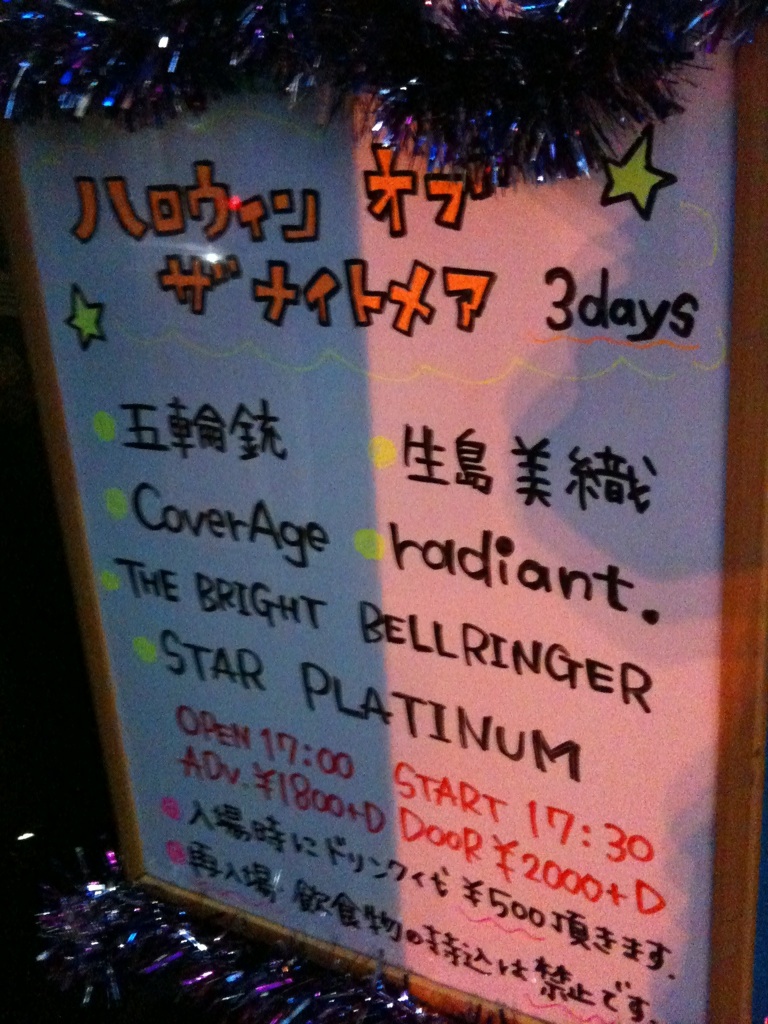 ハロウィン オブ
ザ ナイトメア 3days
五輪銃 生島美織
CoverAge radiant.
THE BRIGHT BELLRINGER
STAR PLATINUM
OPEN 17:00 START 17:30
ADV. ¥1800+D DOOR ¥2000+D
入場時にドリンク代¥500頂きます.
再入場、飲食物の持込は禁止です.